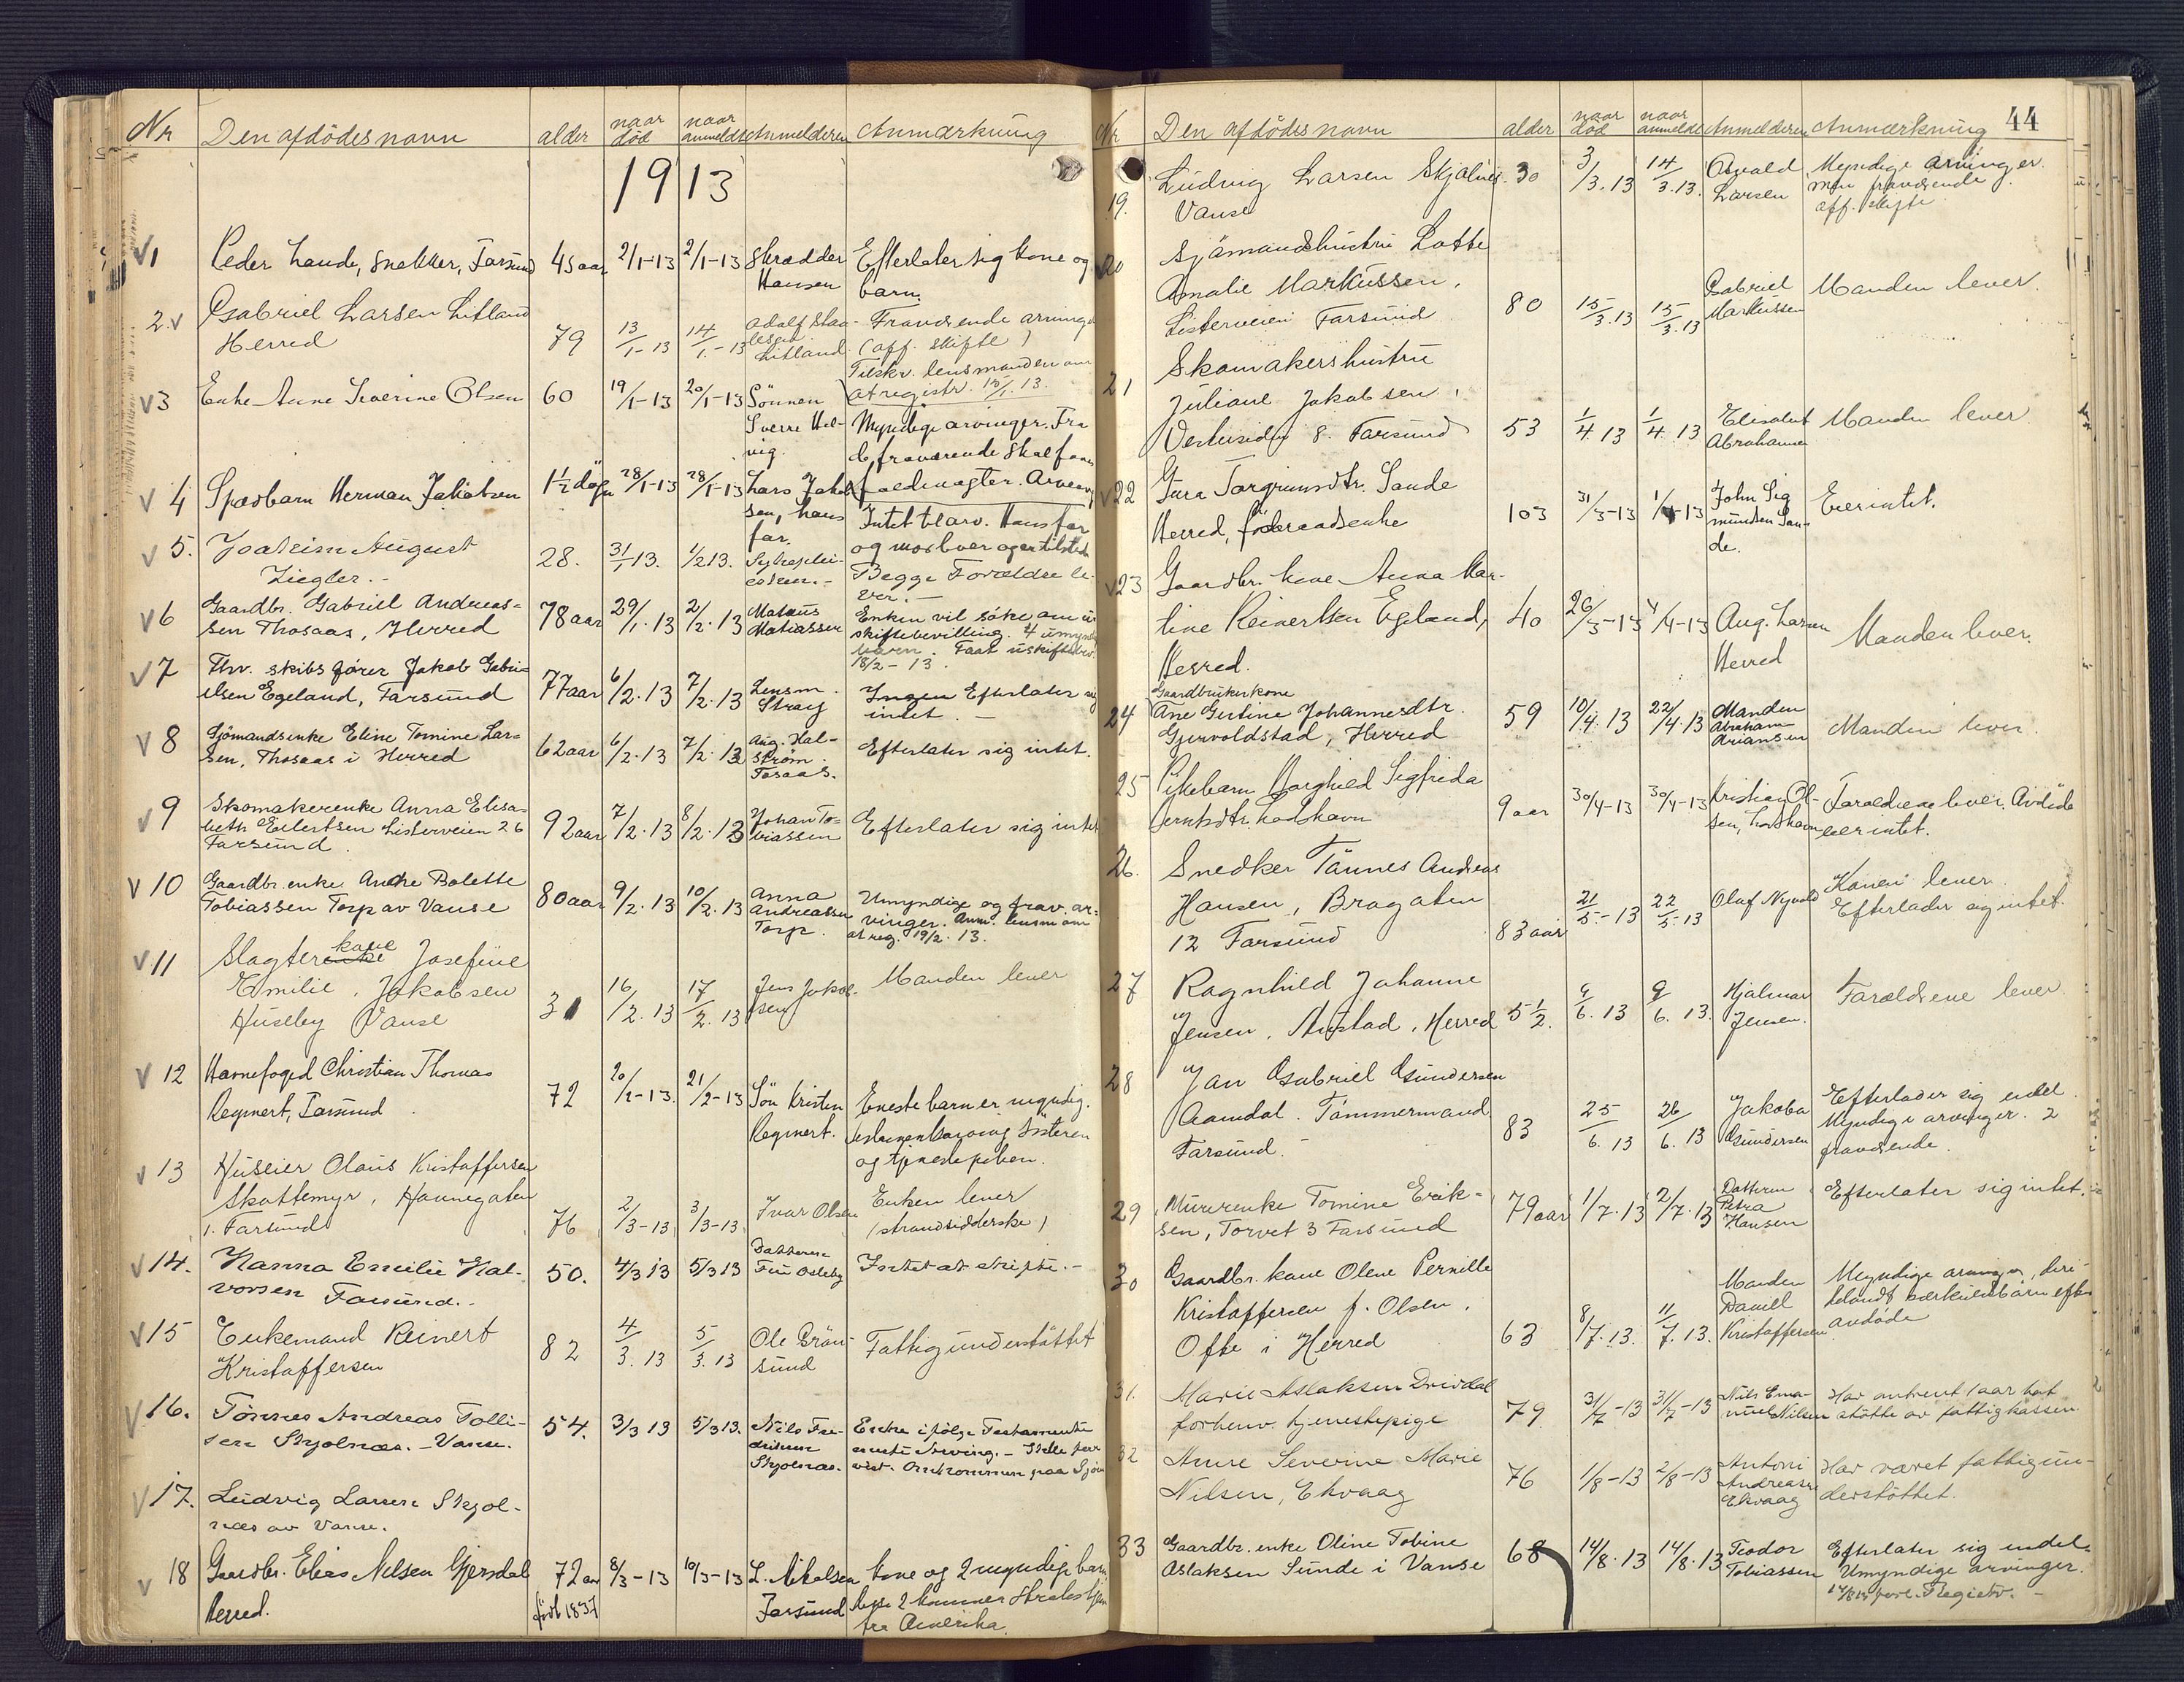 Nr Den afdödes navn alder naar död naar anmeldt Anmelderen Anmærkning
1913
1 Peder Lande, Snekker, Farsund 45 aar 2/1-13 2/1-13 Skrædder Efterlater sig kone og
Hansen barn.
2. Gabriel Larsen Litland
Herred 79 13/1-13 14/1-13 Adolf
Litland Fraværende arvinger
(off. skifte)
Tilskr. lensmanden om
at registr. 15/1.13.
3 Enke Anne Severine Olsen 60 19/1-13 20/1-13 Sönnen
Sverre Hel-
vig. Myndige arvinger. Fra
de fraværende skal faaes
fuldmagter.
4 Spædbarn Herman Jakobsen 1½ dögn 28/1-13 28/1-13 Lars Jakob
sen, hans
far. Intet til arv. Hans far
og mor lever og er tilstede
5. Joakim August
Ziegler.- 28. 31/1 13. 1/2 13. Begge Forældre le-
ver.-
6 Gaardbr. Gabriel Andreas-
sen Thosaas, Herred 78 aar 29/1.13 2/2.13 Mataus
Matiassen Enken vil söke om u
skiftebevilling. 4 umynd
barn. Faat uskiftebev.
18/2-13.
7 Fhv. skibsförer Jakob Gabri-
elsen Egeland, Farsund 77 aar 6/2.13 7/2.13 Lensm.
Stray Ingen Efterlater sig
intet.-
8 Sjömandsenke Eline Tomine Lar-
sen, Thosaas i Herred 62 aar 6/2.13 7/2.13 Aug. Hal-
ström
Tosaas. Efterlater sig intet.
9 Skomakerenke Anna Elisa-
beth Eilertsen Listerveien 26
Farsund. 92 aar 7/2.13 8/2.13 Johan To-
biassen Efterlater sig intet
10 Gaardbr. enke Andre Bolette
Tobiassen Torp av Vanse 80 aar 9/2.13 10/2.13 Anna
Andreassen
Torp. Umyndige og frav. ar-
vinger. Anm. lensm om
at reg. 19/2.13.
11 Slagterenke kone Josefine
Emilie Jakobsen
Huseby Vanse 31 16/2.13 17/2.13 Jens Jakob-
sen Manden lever
12 Havnefoged Christian Thomas
Reymert, Farsund 72 20/2-13. 21/2-13 Sön Kristen
Reymert. Eneste barn er myndig.
Søsteren
og tjenestepiken.
13 Huseier Olaus Kristoffersen
Skottemyr, Havnegaten
1. Farsund 76 2/3-13 3/3-13 Ivar Olsen Enken lever
(strandsidderske)
14. Hanna Emilie Hal-
vorsen Farsund.- 50. 4/3 13 5/3 13 Datteren
Osleby Intet at skifte.-
15 Enkemand Reinert
Kristoffersen 82 4/3.13 5/3.13 Ole Grön-
sund Fattigunderstöttet
16. Tönnes Andreas Tolli-
sen Skjolnæs.- Vanse. 54. 3/3 13 5/3 13. Nils Fre-
driksen
Skjolnæs. Enke ifölge Testamente
eneste Arving.-
Omkommen paa Sjöen
17. Ludvig Larsen Skjol-
næs av Vanse.
18 Gaardbr. Elias Nilsen Gjersdal
Herred. 72 aar
född 1837 8/3-13 10/3-13 L. Nikolsen
Farsund kone og 2 myndige barn,
begge 2 kommer straks hjem
fra Amerika.
44
Nr Den afdödes navn alder naar död naar anmeldt Anmelderen Anmærkning
19. Ludvig Larsen Skjolnes
Vanse 30 3/3.13 14/3.13. Osvald
Larsen Myndige arvinger
men fraværende
off. skifte
20 Sjömandshustru Lotte
Amalie Markussen,
Listerveien Farsund 80 15/3.13 15/3.13 Gabriel
Markussen Manden lever.
21 Skomakershustru
Juliane Jakobsen,
Vestersiden 8. Farsund 53 1/4 13 1/4 13 Elisabet
Abrahamsen Manden lever
22 Gura Torgrimsdtr. Sande
Herred, föderaadsenke 103 31/3-13 1/4-13 John Sig
mundsen San-
de. Eier intet.
23 Gaardbr. kone Anna Mar-
tine Reinertsen Egeland,
Herred. 40 26/3-13 4/4-13 Aug. Larsen
Herred Manden lever.
24 Gaardbrukerkone
Ane Gurine Johannesdtr.
Gjervoldstad, Herred 59 10/4.13 22/4.13 Manden
Abraham
Ariansen Manden lever.
25 Pikebarn Borghild Sigfrida
Berntsdtr. Loshavn 9 aar 30/4-13 30/4-13 Kristian Ol-
sen, Loshavn Forældrene lever. Avdöde
eier intet.
26. Snedker Tönnes Andreas
Hansen, Bragaten
12 Farsund 83 aar 21/5-13 22/5-13 Olaf Nyvold Konen lever.
Efterlader sig intet.
27 Ragnhild Johanne
Jensen, Austad, Herred 5½. 9/6.13 9/6.13. Hjalmar
Jensen. Forældrene lever
28 Jan Gabriel Gundersen
Aamdal. Tömmermand
Farsund. 83 25/6.13 26/6.13 Jakoba
Gundersen Efterlader sig endel.
Myndige arvinger. 2
fraværende.
29 Murerenke Tomine Erik-
sen, Torvet 3 Farsund 79 aar 1/7.13 2/7.13 Datteren
Petra
Hansen Efterlater sig intet.
30 Gaardbr. kone Olene Pernille
Kristoffersen f. Olsen,
Ofte i Herred 63 8/7.13. 11/7.13. Manden
Daniel
Kristoffersen Myndige arvinger, deri-
blandt særkuldsbarn efter
avdöde
31. Marie Aslaksen Drivdal
forhenv. tjenestepige 79 31/7-13 31/7-13 Nils Ema-
nuel Nilsen Har omtrent 1 aar hat
stötte av fattigkassen.
32 Anne Severine Marie
Nilsen, Ekvaag 76 1/8-13 2/8-13 Antoni
Andreassen
Ekvaag Har været fattigun-
derstöttet.
33 Gaardbr. enke Oline Tobine
Aslaksen Sunde i Vanse 68 14/8.13 14/8.13 Teodor
Tobiassen Efterlater sig endel.
Umyndige arvinger.